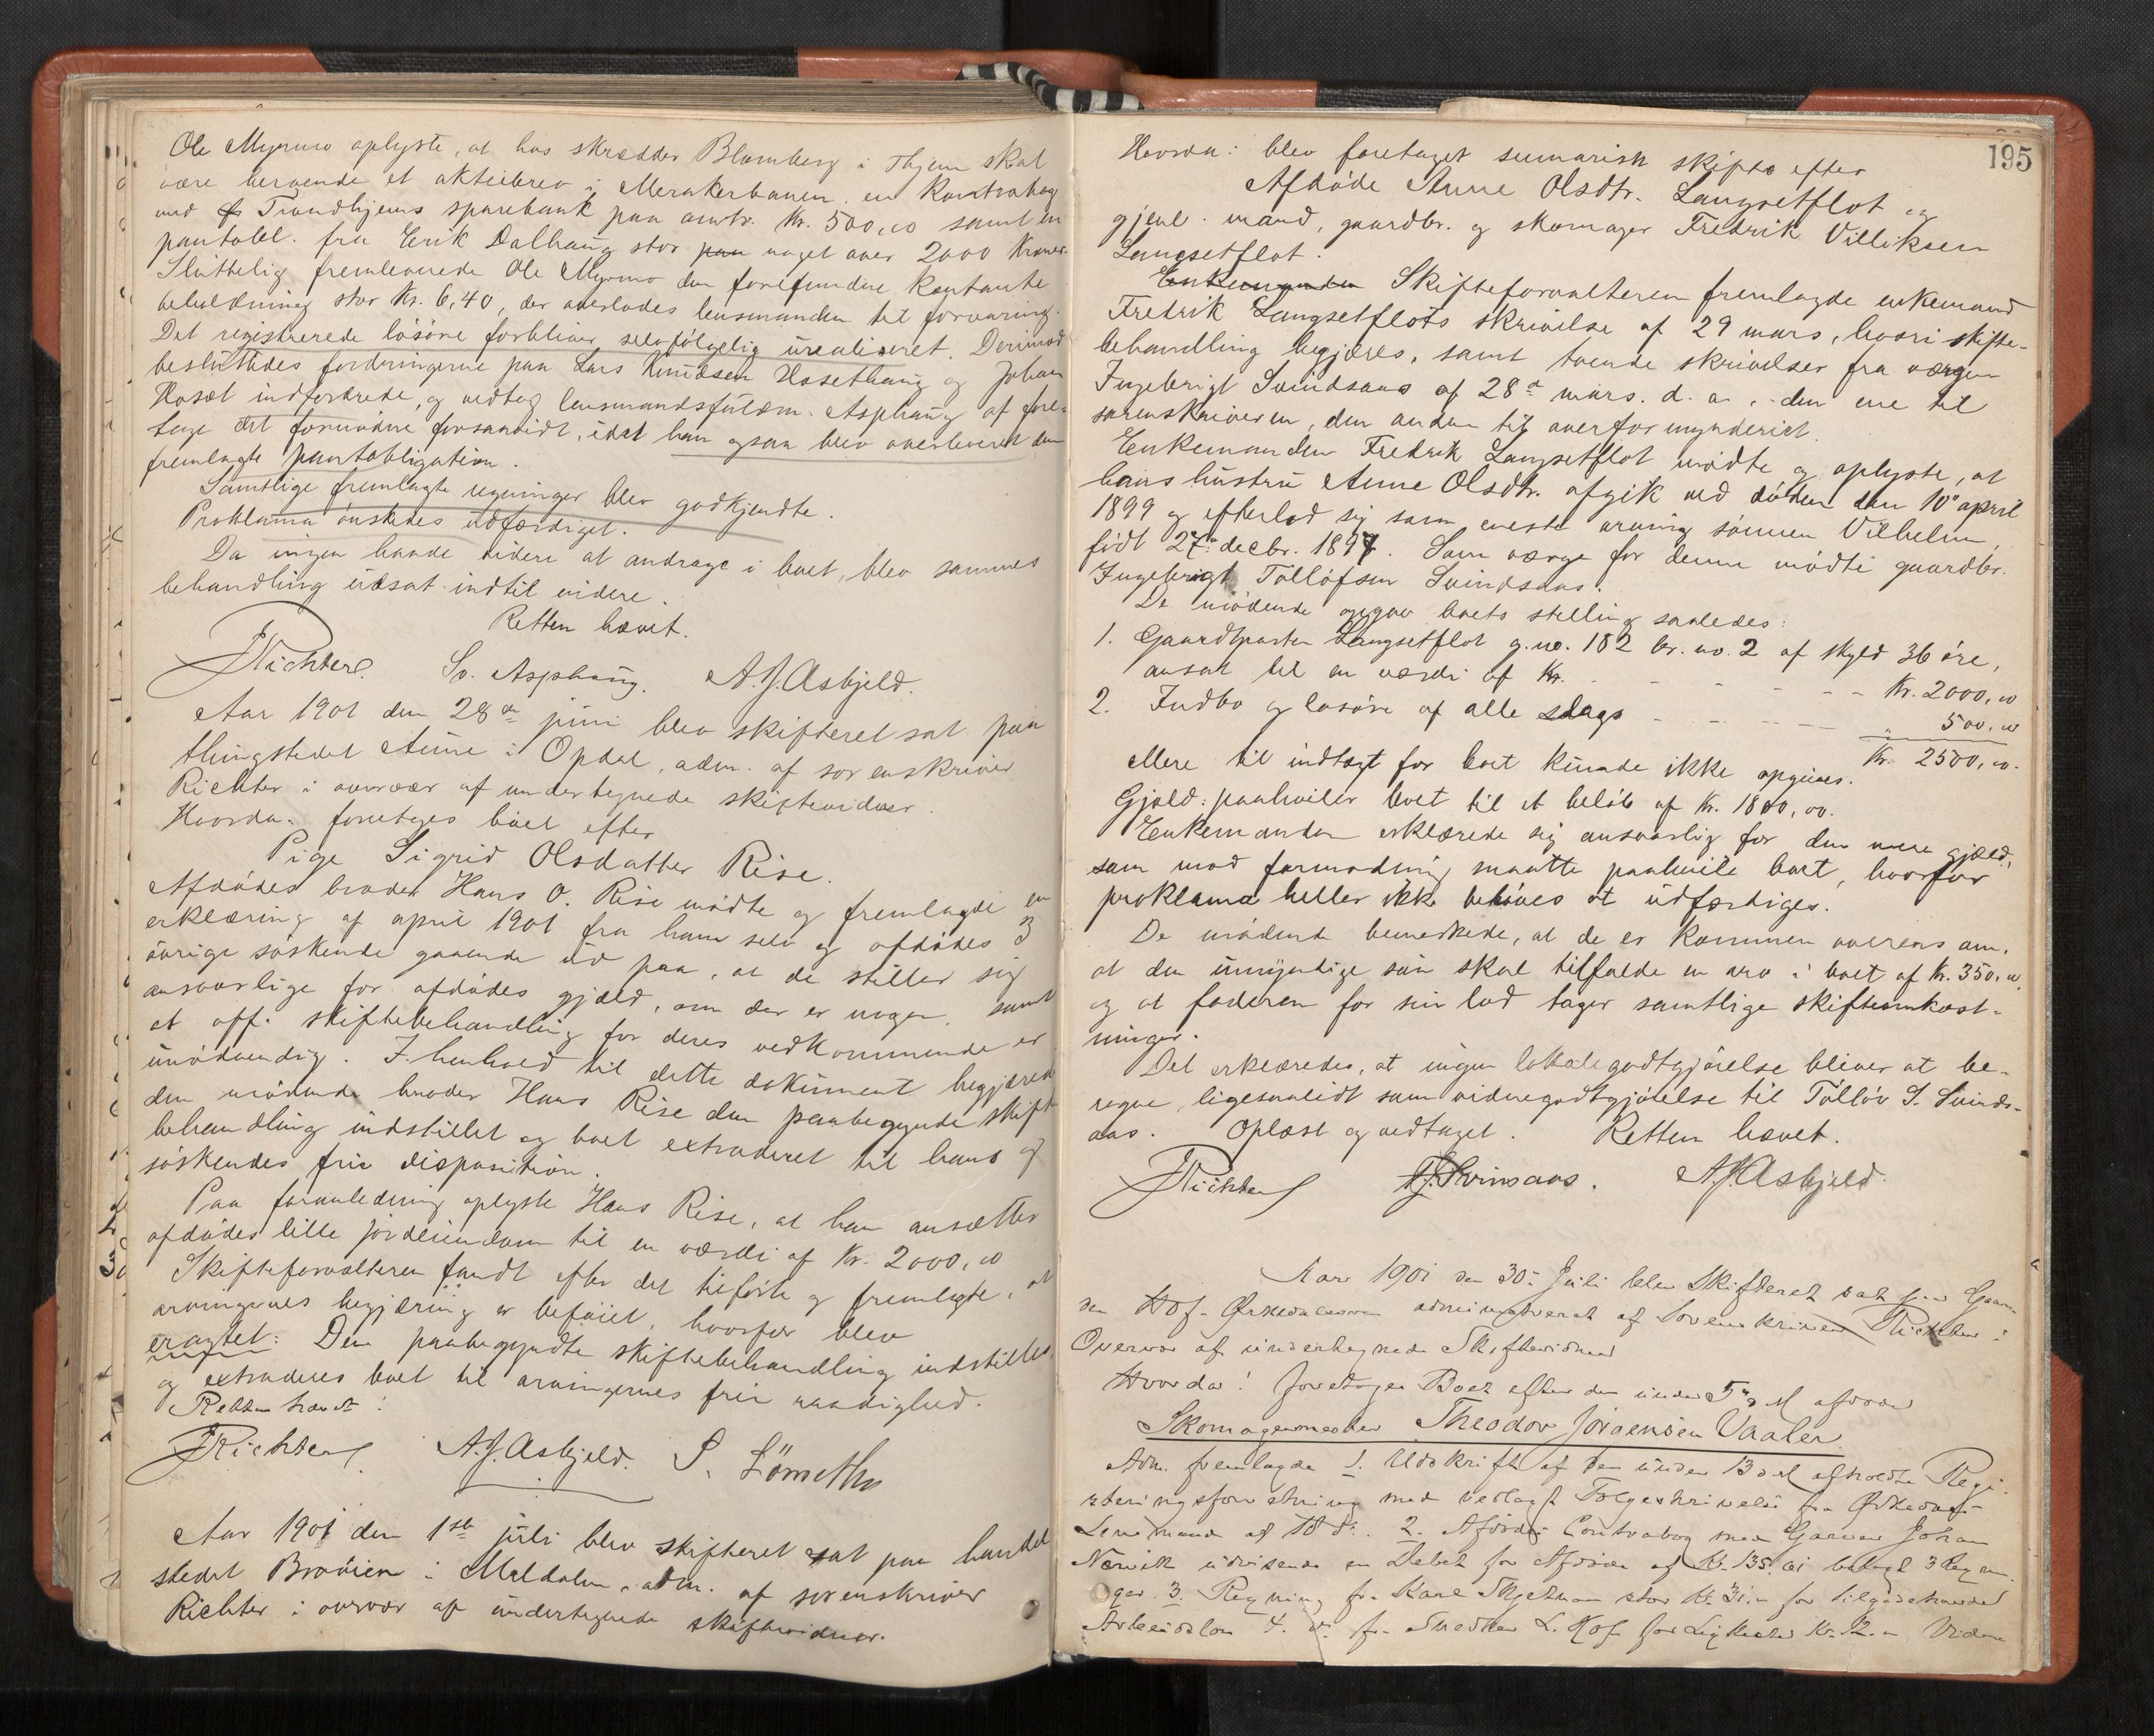 Ole Myrmo oplyste, at hos skrædder Blomberg i Thjem skal
være beroende et aktiebrev i Merakerbanen, en kontrabog
med Trondhjems sparebank paa omtr. Kr. 500,00 samt en
pantobl. fra Erik Dalhaug stor paa noget over 2000 Kroner.
Sluttelig fremleverede Ole Myrmo den forefundne kontante
beholdning stor Kr. 6,40, der overlodes lensmanden til forvaring.
Det registrerede løsøre forbliver selvfølgelig urealiseret. Derimod
besluttedes fordringerne paa Lars Knudsen Hosethaug og Johan
Hoset indfordrede, og vedtog lensmandsfuldm. Asphaug at fore-
tage det fornødne forsaavidt, idet han ogsaa blev overleveret den
fremlagte pantobligation.
Samtlige fremlagte regninger blev godkjendte.
Proklama ønskedes udfærdiget.
Da ingen havde videre at andrage i boet, blev sammes
behandling udsat indtil videre.
Retten hævet.
Richter. Sv. Asphaug. A. J. Asbjeld.
Aar 1901 den 28de juni blev skifteret sat paa
thingstedet Aune i Opdal, adm. af sorenskriver
Richter i overvær af undertegnede skiftevidner.
Hvorda: foretoges boet efter
Pige Sigrid Olsdatter Rise.
Afdødes broder Hans O. Rise mødte og fremlagde en
erklæring af april 1901 fra ham selv og afdødes 3
øvrige søskende gaaende ud paa, at de stiller sig
ansvarlige for afdødes gjæld, om der er nogen, samt
at off. skiftebehandling for deres vedkommende er
unødvendig. I henhold til dette dokument begjæred
den mødende broder Hans Rise den paabegyndte skift
behandling indstillet og boet extraderet til hans og
søskendes frie disposition.
Paa foranledning oplyste Hans Rise, at han ansætter
afdødes lille jordeiendom til en værdi af Kr. 2000,00
Skifteforvalteren fandt efter det tilførte og fremlagte, at
arvingernes begjæring er beføiet, hvorfor blev
eragtet: Den paabegyndte skiftebehandling indstilles
og extraderes boet til arvingernes frie raadighed.
Retten hævet.
Richter A. J. Asbjeld. S.
Aar 1901 den 1ste juli blev skifteret sat paa handel
stedet i Meldalen, adm. af sorenskriver
Richter i overvær af undertegnede skiftevidner.
195
Hvorda: blev foretaget sumarisk skifte efter
Afdøde Anne Olsdtr. Langsetflot og
gjenl. mand, gaardbr. og skomager Fredrik Villiksen
Langsetflot.
Enkemanden Skifteforvalteren fremlagde enkemand
Fredrik Langsetflots skrivelse af 29 mars, hvori skifte-
behandling begjæres, samt tvende skrivelser fra værgen
Ingebrigt Svindsaas af 28de mars d. a., den ene til
sorenskriveren, den anden til overformynderiet.
Enkemanden Fredrik Langsetflot mødte og oplyste, at
hans hustru Anne Olsdtr. afgik ved døden den 10de april
1899 og efterlod sig som eneste arving sønnen Vilhelm,
født 27de decbr. 1897. Som værge for denne mødte gaardbr.
Ingebrigt Tollofsen Svindsaas.
De mødende opgav boets stilling saaledes:
1. Gaardparten Langsetflot g.no. 182 br. no. 2 af skyld 36 øre,
ansat til en værdi af Kr. - - - - - Kr. 2000,00
2. Indbo og løsøre af alle slags - - - - " 500,00
Kr. 2500,00.
Mere til indtægt for boet kunde ikke opgives.
Gjæld: paahviler boet til et beløb af Kr. 1800,00.
Enkemanden erklærede sig ansvarlig for den mere gjæld,
som mod formodning maatte paahvile boet, hvorfor
proklama heller ikke behøves at udfærdiges.
De mødende bemerkede, at de er kommen overens om,
at den umyndige søn skal tilfalde en arv i boet af Kr. 350,00,
og at faderen for sin lod tager samtlige skifteomkost-
ninger.
Det erklæredes, at ingen lokalegodtgjørelse bliver at be-
regne, ligesaalidt som vidnegodtgjørelse til Tolløv S. Svinds-
aas. Oplæst og vedtaget. Retten hævet.
Richter T. J. Svinsaas. A. J. Asbjeld.
Aar 1901 den 30. Juli blev Skifteret sat paa Gaar
den Hof - Ørkedalsøren administreret af Sorenskriver Richter i
Overvær af undertegnede Skiftevidner
Hvorda! foretoges Boet efter den under afdøde
Skomagermester Theodor Jørgensen Vaaler
Adm. fremlagde 1. Udskrift af den under 13 afholdte Regi-
streringsforretning med vedlagt Følgeskrivelse fra Ørkedals
Lensmand af 18 ds. 2. Afdødes Contrabog med Garver Johan
Nervik udvisende en Debet for Afdøde af Kr. 135, bilagt 3 Regnin-
ger. 3. Regning fra Karl stor Kr. 31, for tilgodehavende
Arbeidsløn 4. do. fra Snedker L. Hof for Ligkiste Kr. 12, Videre